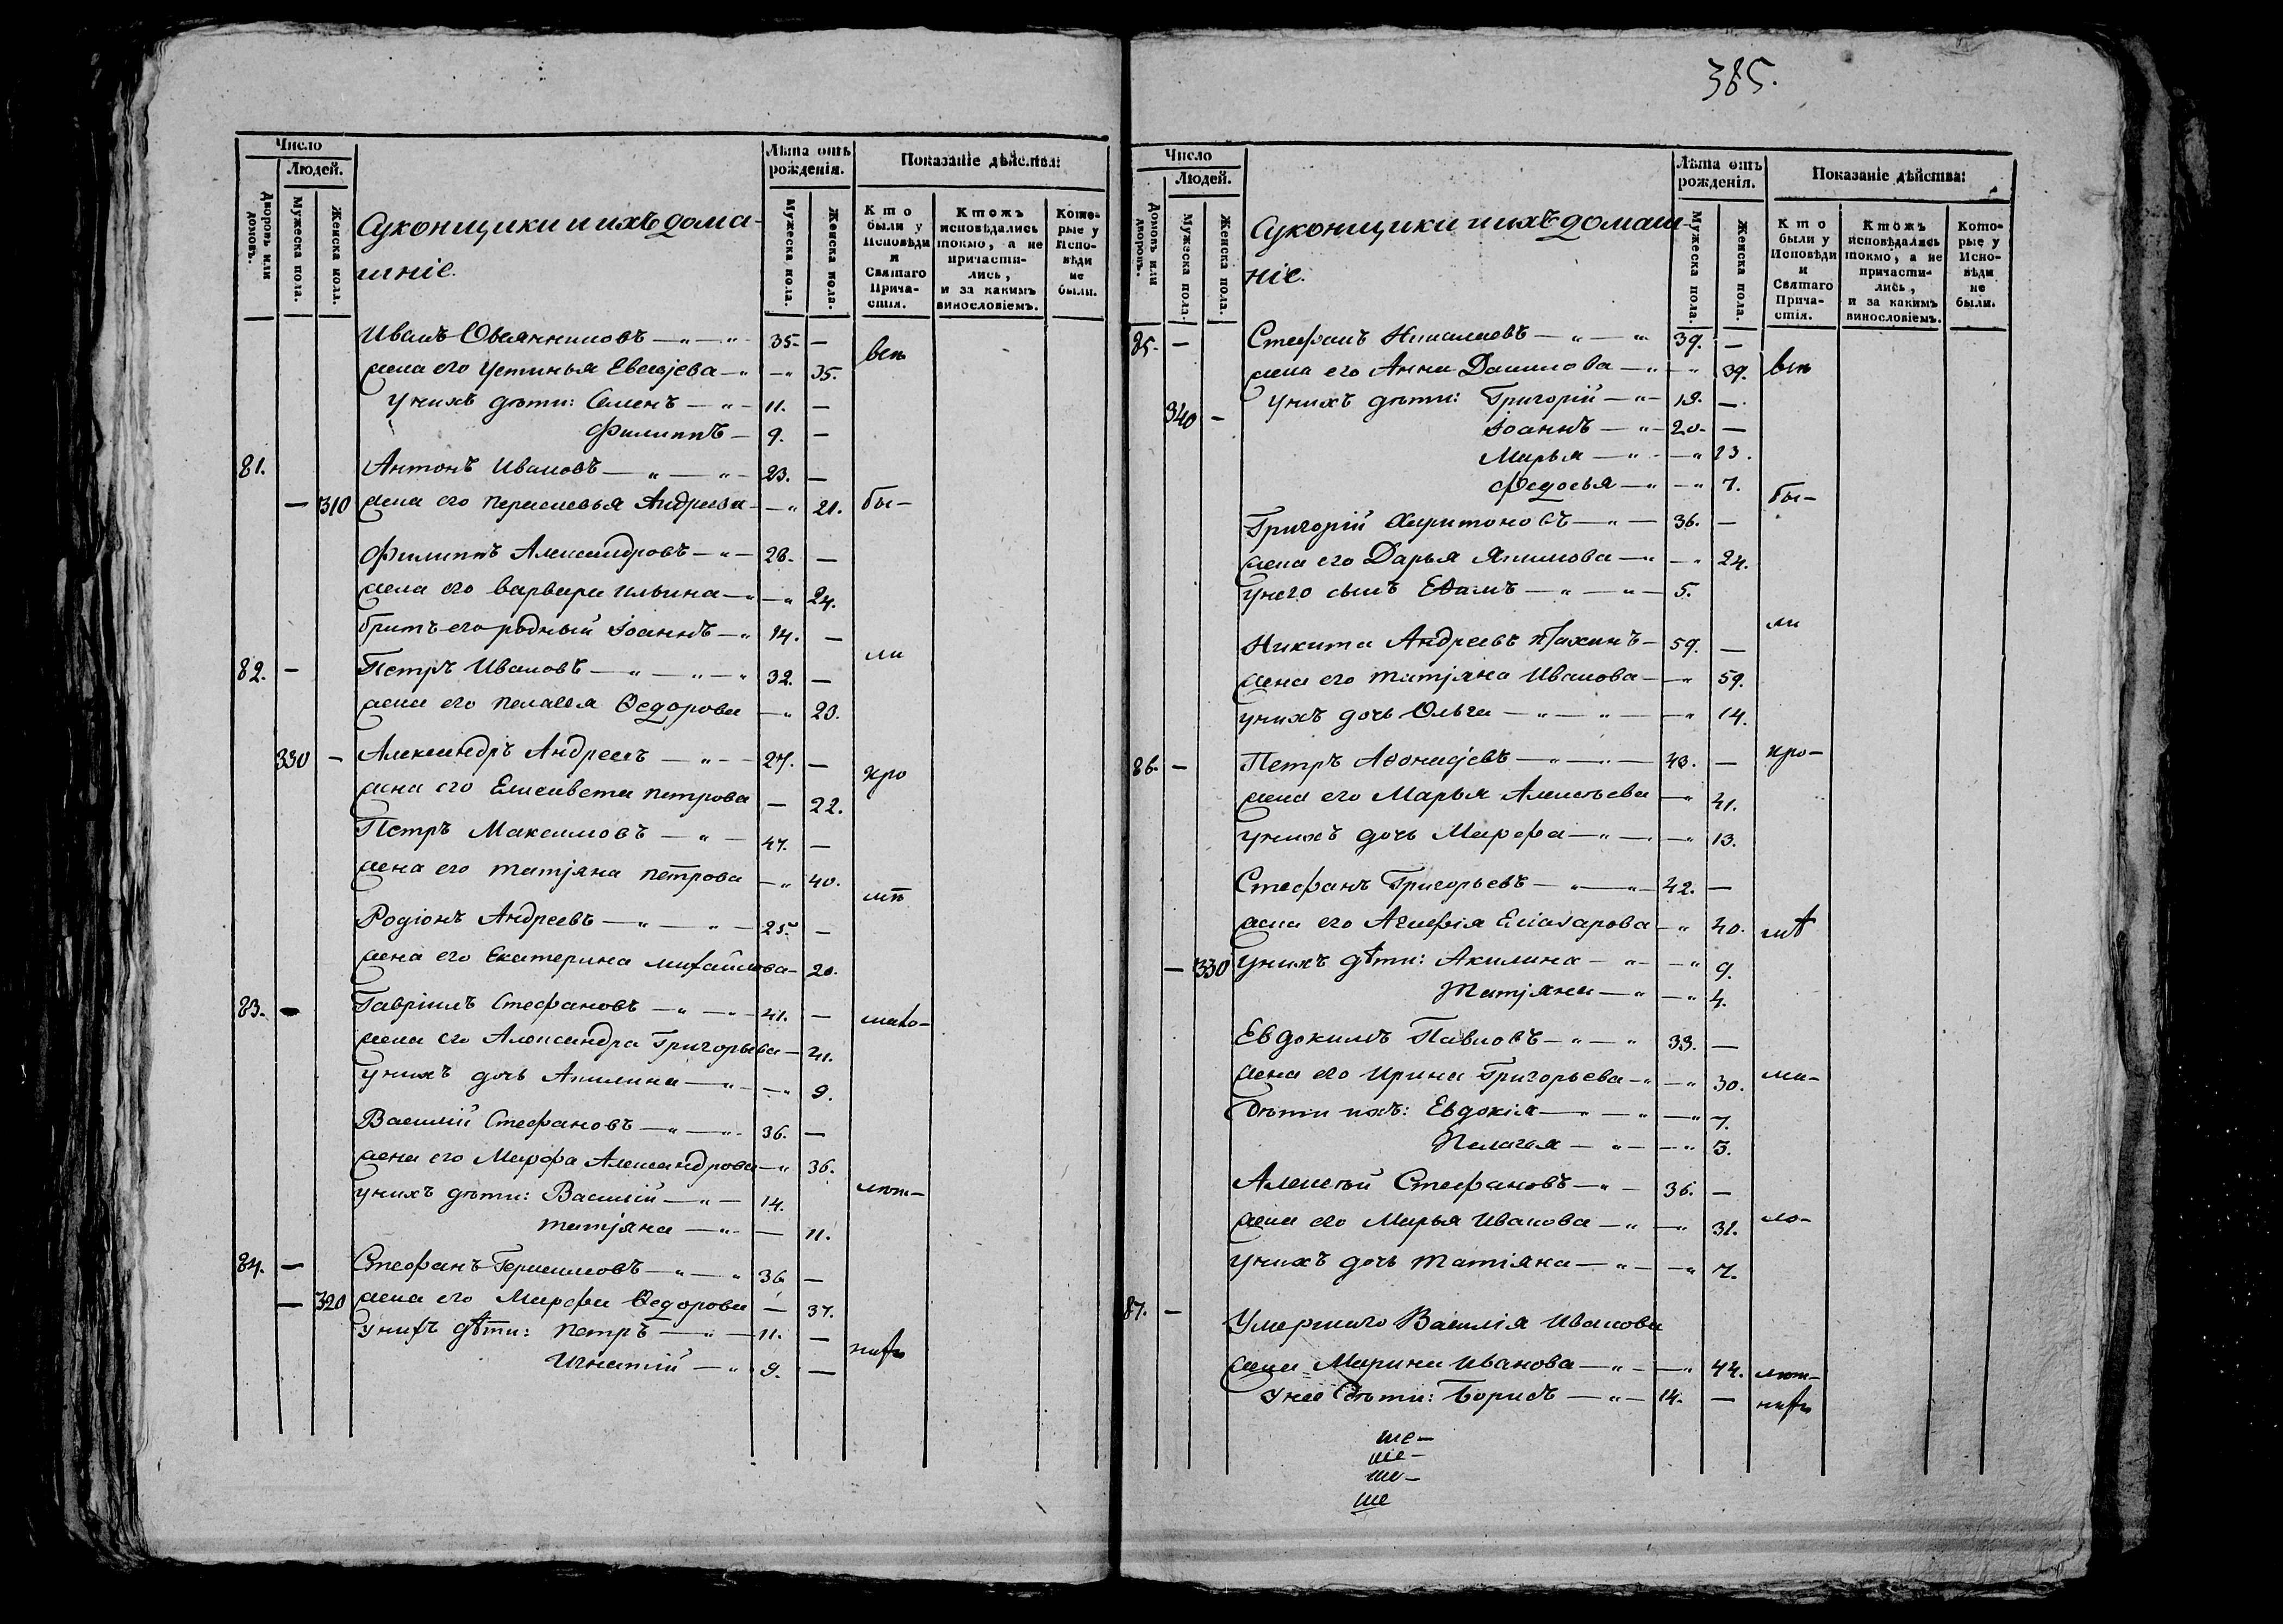 385.
Число
Людей.
Дворовъ или домовъ.
Мужеска пола.
Женска пола.
Суконщики и ихъ дома-
шніе.
Лѣта отъ рожденія.
Мужеска пола.
Женска пола.
Показаніе дѣйства:
Кто были у Исповѣди и Святаго Прича-стія.
Ктожъ исповѣдались токмо, а не причасти-лись, и за какимъ винословіемъ.
Кото-рые у Испо-вѣди не были.
Иванъ Овсянниковъ — „ — „ 35. —
жена его Устинья Евсеѣева — „ — „ 35.
у нихъ дѣти: Семенъ — „ — 11. —
Филиппъ — 9. —
81. Антонъ Ивановъ — „ — „ — 23. —
— 310 жена его Перасковья Андреева — „ 21. бы-
Филиппъ Александровъ — „ — 26. —
жена его Варвара Ильина — „ — „ 24.
братъ его родный Іоаннъ — „ 14. —
82. — Петръ Ивановъ — „ — „ — „ 32. —
жена его Пелагея Ѳедорова — „ 20.
330 — Александръ Андреевъ — „ — 27. —
жена его Елисавета Петрова — 22.
Петръ Максимовъ — „ — 47. —
жена его Татіяна Петрова — „ 40.
Родіонъ Андреевъ — „ — „ — 25. —
жена его Екатерина Михайлова — 20.
83. — Гавріилъ Стефановъ — „ — „ — 41. —
жена его Александра Григорьева — 41.
у нихъ дочь Акилина — „ — „ 9.
Василій Стефановъ — „ — „ 36. —
жена его Марфа Александрова — „ 36.
у нихъ дѣти: Василій — „ — 14.
Татіяна — „ — 11.
84. — Стефанъ Герасимовъ — „ — „ 36 —
— 320 жена его Марфа Ѳедорова — 37.
у нихъ дѣти: Петръ — „ — 11. —
Игнатій — „ 9. —
Число
Людей.
Домовъ или дворовъ.
Мужеска пола.
Женска пола.
Суконщики и ихъ домаш-
ніе.
Лѣта отъ рожденія.
Мужеска пола.
Женска пола.
Показаніе дѣйства:
Кто были у Исповѣди и Святаго Прича-стія.
Ктожъ исповѣдались токмо, а не причасти-лись, и за какимъ винословіемъ.
Кото-рые у Испо-вѣди не были.
85. — Стефанъ — „ — „ 39. —
жена его Анна Данилова — „ — „ 39.
340 — у нихъ дѣти: Григорій — „ — 19. —
Іоаннъ — „ — 20. —
Марья — „ — „ 13.
Федосья — „ — „ 7. бы-
Григорій Харитоновъ — „ — 36. —
жена его Дарья Якимова — „ — „ 24.
у него сынъ — „ — „ — 5.
ли
Никита Андреевъ — 59. —
жена его Татіяна Иванова — „ 59.
у нихъ дочь Ольга — „ — „ — „ 14.
86. — Петръ — „ — „ — 43. — кро-
жена его Марья Алексѣева — „ 41.
у нихъ дочь Марфа — „ — „ 13.
Стефанъ Григорьевъ — „ — „ 42. —
жена его Агафія Елиазарова — „ 40. мѣ
— 330 у нихъ дѣти: Акилина — „ — „ 9.
Татіяна — „ — „ 4.
Евдокимъ Павловъ — „ — „ 33. —
жена его Ирина Григорьева — „ — „ 30. ма-
дѣти ихъ: Евдокія — „ — „ — „ 7.
Пелагея — „ — „ 3.
Алексѣй Стефановъ — „ — 36. —
жена его Марья Иванова — „ — „ 32. ло-
у нихъ дочь Татіяна — „ — „ 7.
87. — Умершаго Василія Иванова
жена Марина Иванова — „ — „ 44. лѣт-
у нее дѣти: Борисъ — „ — 14. — нихъ